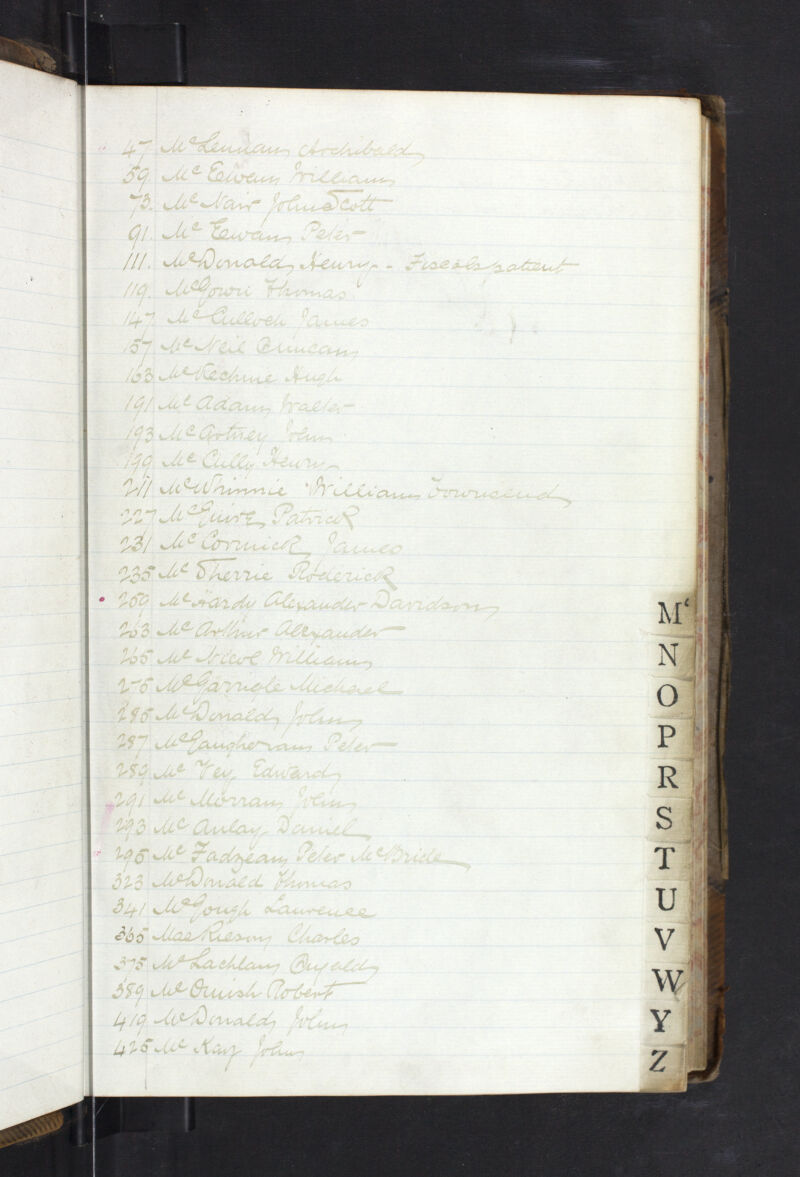 47 McLennan Archibald
59. McEwan William
73. McNair John Scott
91. McEwan Peter
111. McDonald Henry - Fiscals patient
119. McGown Thomas
147 McCulloch James
157 McNeil Duncan
163 McKechnie Hugh
191 McAdam Walter
193 McCartney John
199 McCully Henry
211 McWhinnie William Townsend
227 McGuire Patrick
231 McCormick James
235 McSherrie Roderick
259 McHardy Alexander Davidson
263 McArthur Alexander
265 McNicol William
275 McGarrigle Michael
285 McDonald John
287 McGaugheran Peter
289 McVey Edward
291 McMorran John
293 McAulay Daniel
295 McFadzean Peter McBride
323 McDonald Thomas
341 McGough Laurence
365 Charles
375 McLachlan Dugald
389 Robert
419 McDonald John
425 McKay John
Mc
N
O
P
R
S
T
U
V
W
Y
Z